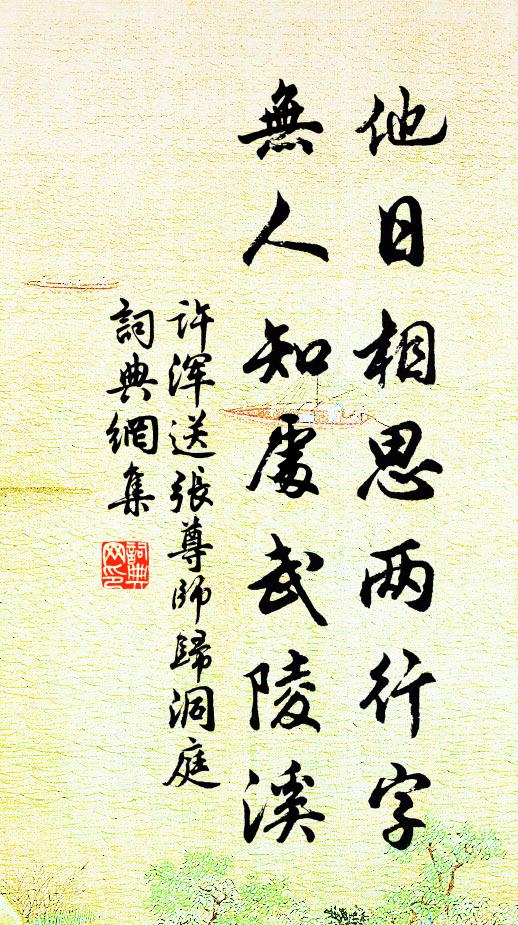 他日相思两行字
無人知處武陵溪
许浑送張尊師歸洞庭
詞典網集
詞典網印